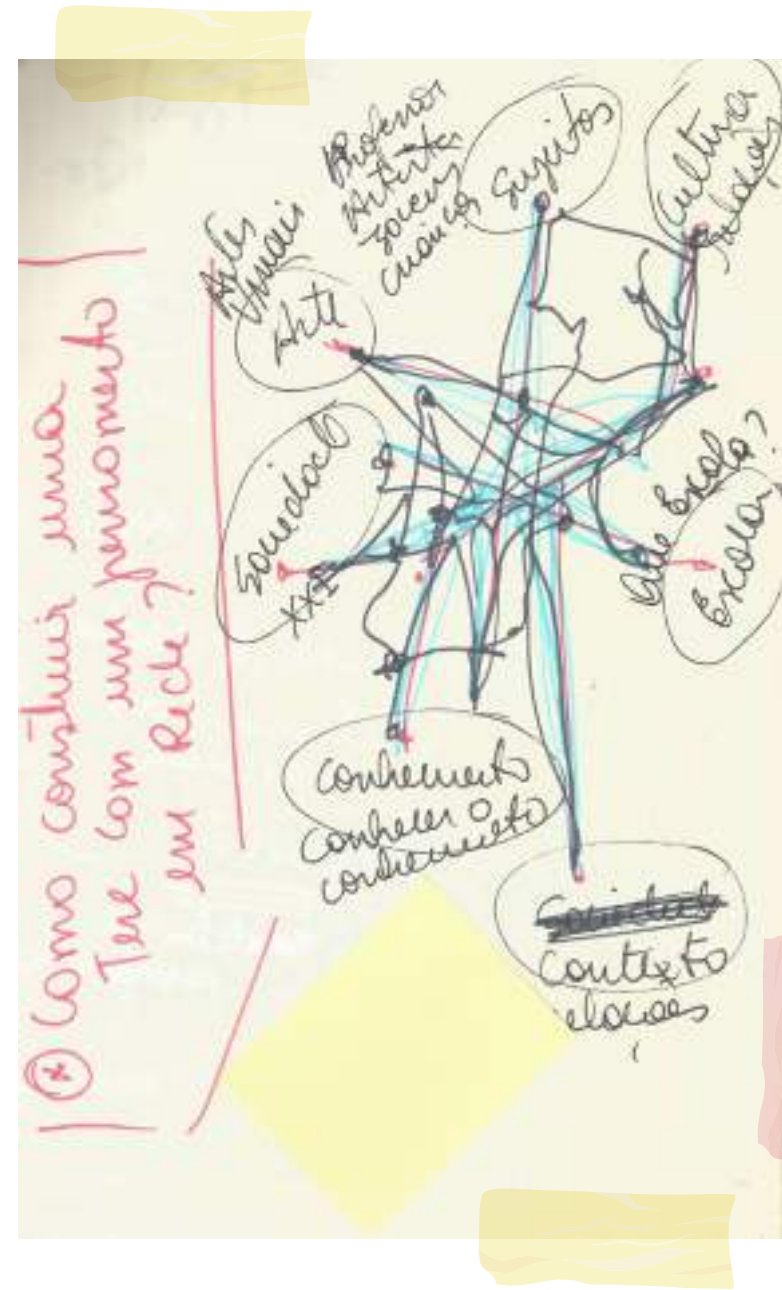 Como construir uma
Tese com um pensamento
em Rede?
Artes
Visuais
Arte
Professor
Artista
Sujeitos
Cultura
relações
Sociedade
XXI
Que Escola?
Escola
Conhecimento
conhecer o
conhecimento
Contexto
relações